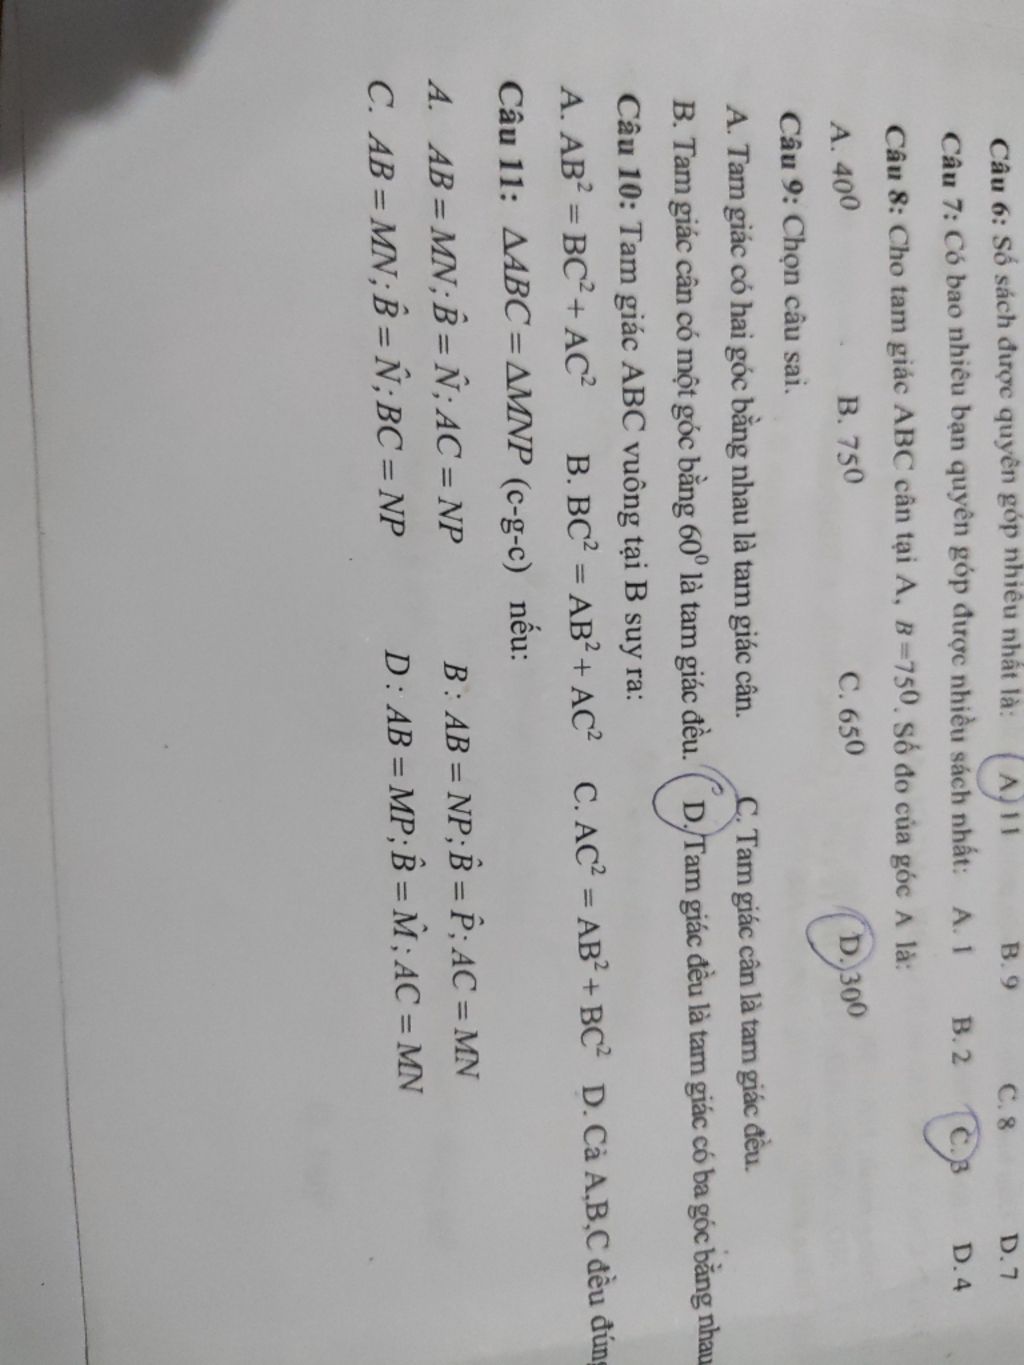 Câu 6: Số sách được quyên góp nhiều nhất là: A. 11 B. 9 C. 8 D. 7
Câu 7: Có bao nhiêu bạn quyên góp được nhiều sách nhất: A. 1 B. 2 C. 3 D. 4
Câu 8: Cho tam giác ABC cân tại A, B=75⁰. Số đo của góc A là:
A. 40⁰ B. 75⁰ C. 65⁰ D. 30⁰
Câu 9: Chọn câu sai.
A. Tam giác có hai góc bằng nhau là tam giác cân. C. Tam giác cân là tam giác đều.
B. Tam giác cân có một góc bằng 60⁰ là tam giác đều. D. Tam giác đều là tam giác có ba góc bằng nhau
Câu 10: Tam giác ABC vuông tại B suy ra:
A. AB² = BC² + AC² B. BC² = AB² + AC² C. AC² = AB² + BC² D. Cả A,B,C đều đúng
Câu 11: ΔABC = ΔMNP (c-g-c) nếu:
A. AB = MN; B̂ = N̂; AC = NP B: AB = NP; B̂ = P̂; AC = MN
C. AB = MN; B̂ = N̂; BC = NP D: AB = MP; B̂ = M̂; AC = MN